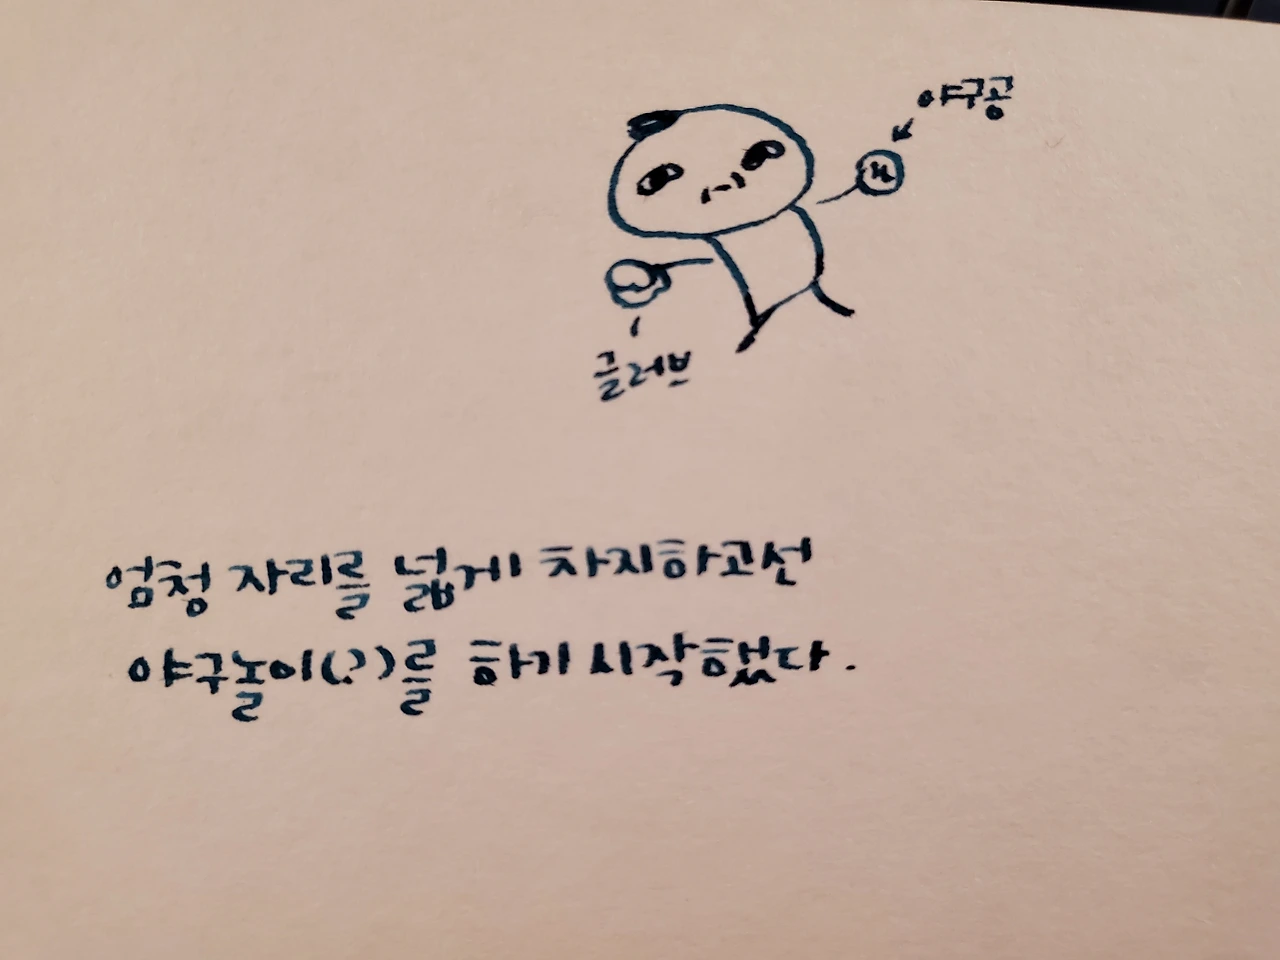 야구공
글러브
엄청 자리를 넓게 차지하고선
야구놀이(?)를 하기 시작했다.